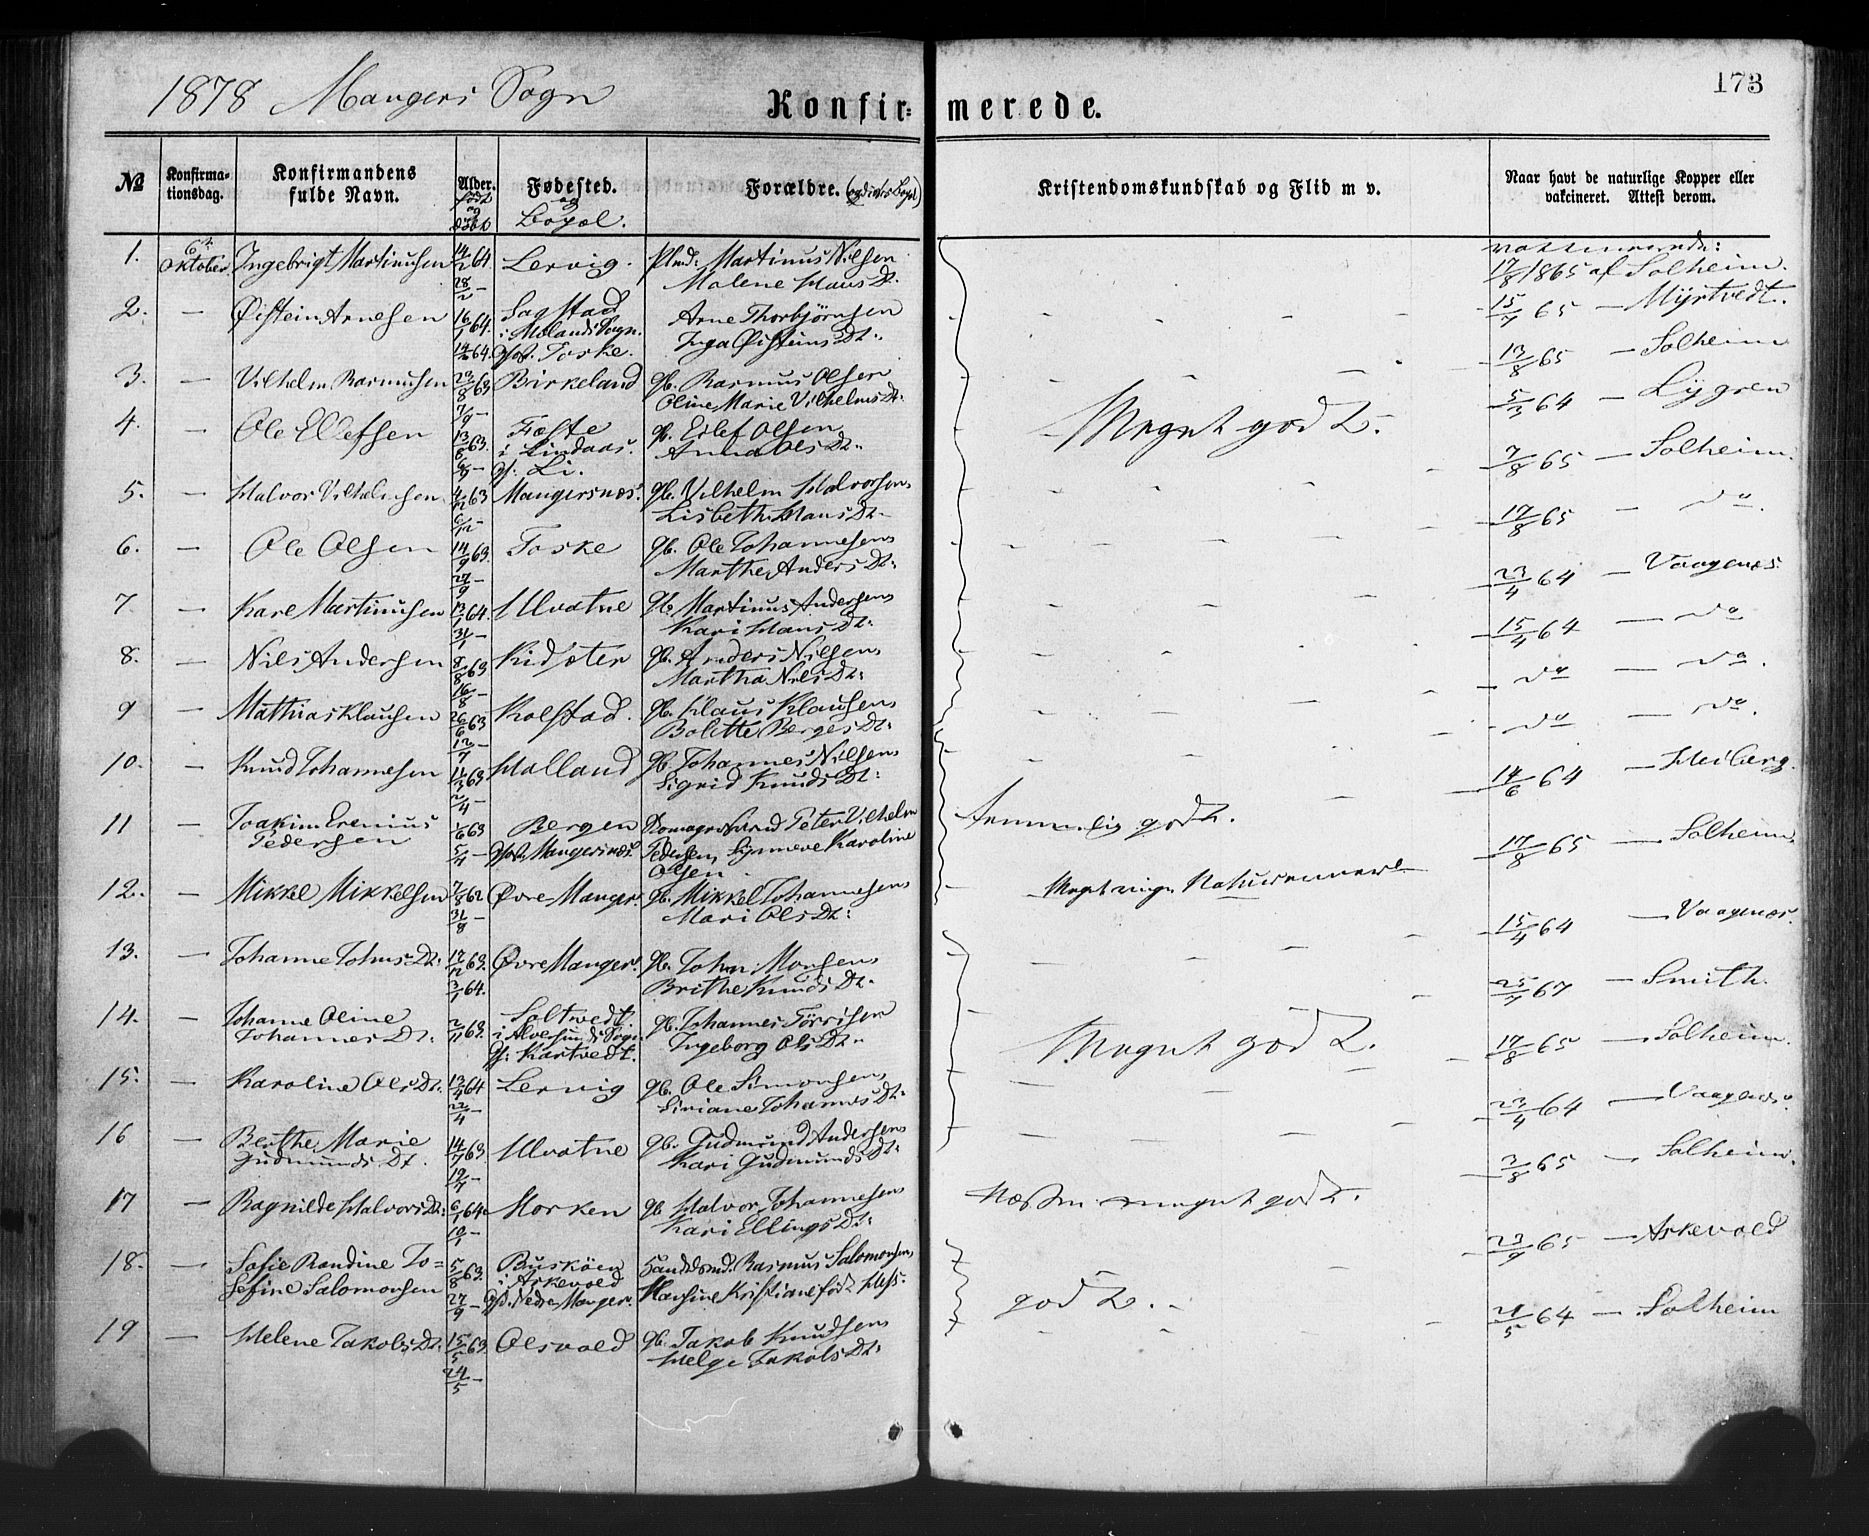 1878 Mangers Sogn
Konfir=
merede.
173
No
Konfirma-
tionsdag.
Konfirmandens
fulde Navn.
Alder.
født
og
døbt
Fødested.
og
Bopæl.
Forældre.
Kristendomskundskab og Flid m v.
Naar havt de naturlige Kopper eller
vakcineret. Attest derom.
1. 6te Oktober Ingebrigt Martinussen 14/2 64 28/2 – Lervig. Martinus Nilsen
Malene Hans Dt.
17/8 1865 af Solheim.
2. — Øistein Arnesen 16/1 64. 14/2 64. Sagstad
i Mælands Sogn.
Foske.
Arne Thorbjørnsen
Inga Øisteins Dt.
15/7 65 — Myrtvedt.
3. — Vilhelm Rasmussen 23/8 63 7/9 – Birkeland Gb. Rasmus Olsen
Oline Marie Vilhelms Dt.
13/8 65 — Solheim
4. — Ole Ellefsen 13/8 63. 6/9 – Fæste
i Lindaas.
Li.
Gb. Eilef Olsen
Anna Ols Dt.
Meget godt.
5/3 64 — Lygren
5. — Halvor Vilhelmsen 4/12 63 6/12 – Mangersnæs. Gb. Vilhelm Halvorsen
Lisbeth Hans Dt.
7/8 65 — Solheim.
6. — Ole Olsen 14/9 63. 27/9 – Foske Gb. Ole Johannesen
Marthe Anders Dt.
17/8 65 — do.
7. — Kare Martinussen 13/1 64. 31/1 Ulvatne Gb. Martinus Andersen
Kari Hans Dt.
23/4 64 — Vaagenæs.
8. — Nils Andersen 8/8 63 16/8 – Kidsæter Gb. Anders Nilsen
Martha Nils Dt.
15/4 64 — do
9 — Mathias Klausen 26/6 63 12/7 – Kolstad. Gb. Klaus Klausen
Bolette Berges Dt.
do — do.
10. — Knud Johannesen 11/3 63 2/4 – Halland Gb. Johannes Nilsen
Sigrid Knuds Dt.
do — do.
11 — Joakim Erenius
Pedersen
1/6 63 5/4 – Bergen
Mangersnæs.
Peter Vilhelm
Pedersen, Synneve Karoline
Olsen
godt.
14/6 64 — Heiberg.
12. — Mikkel Mikkelsen 7/8 62 31/8 – Øvre Manger. Gb. Mikkel Johannesen
Mari Ols Dt.
17/8 65 — Solheim.
13. — Johanne Johns Dt. 17/12 63. 3/1 64. Øvre Manger. Gb. John Monsen
Brithe Knuds Dt.
15/4 64 — Vaagenæs.
14. — Johanne Oline
Johannes Dt.
2/11 63. Soltvedt.
i Alversunds Sogn
Kartvedt.
Gb. Johannes Torrisen
Ingeborg Ols Dt.
Meget godt.
25/7 67 — Smith.
15. — Karoline Ols Dt. 13/4 64 22/4 – Lervig Gb. Ole Simonsen
Siriane Johannes Dt.
17/8 65 — Solheim.
16 — Berthe Marie
Gudmunds Dt.
14/7 63 19/7 – Ulvatne Gb. Gudmund Andersen
Kari Gudmunds Dt.
23/4 64 — Vaagenæs.
17 — Ragnilde Halvors Dt. 6/1 64. 10/1 – Horken Gb. Halvor Johannesen
Kari Ellings Dt.
Næsten meget godt.
3/8 65 — Solheim.
18. — Sofie Randine Jo=
sefine Salomonsen
5/8 63. 27/9 – Buskøen
i Askevold
Nedre Manger.
Handelsmd. Rasmus Salomonsen
Hansine Kristiane født Huss.
godt.
23/9 65 — Askevold
19 — Helene Jakobs Dt. 15/5 63. 24/5 – Olsvold Gb. Jakob Knudsen
Helge Jakobs Dt.
21/5 64 — Solheim